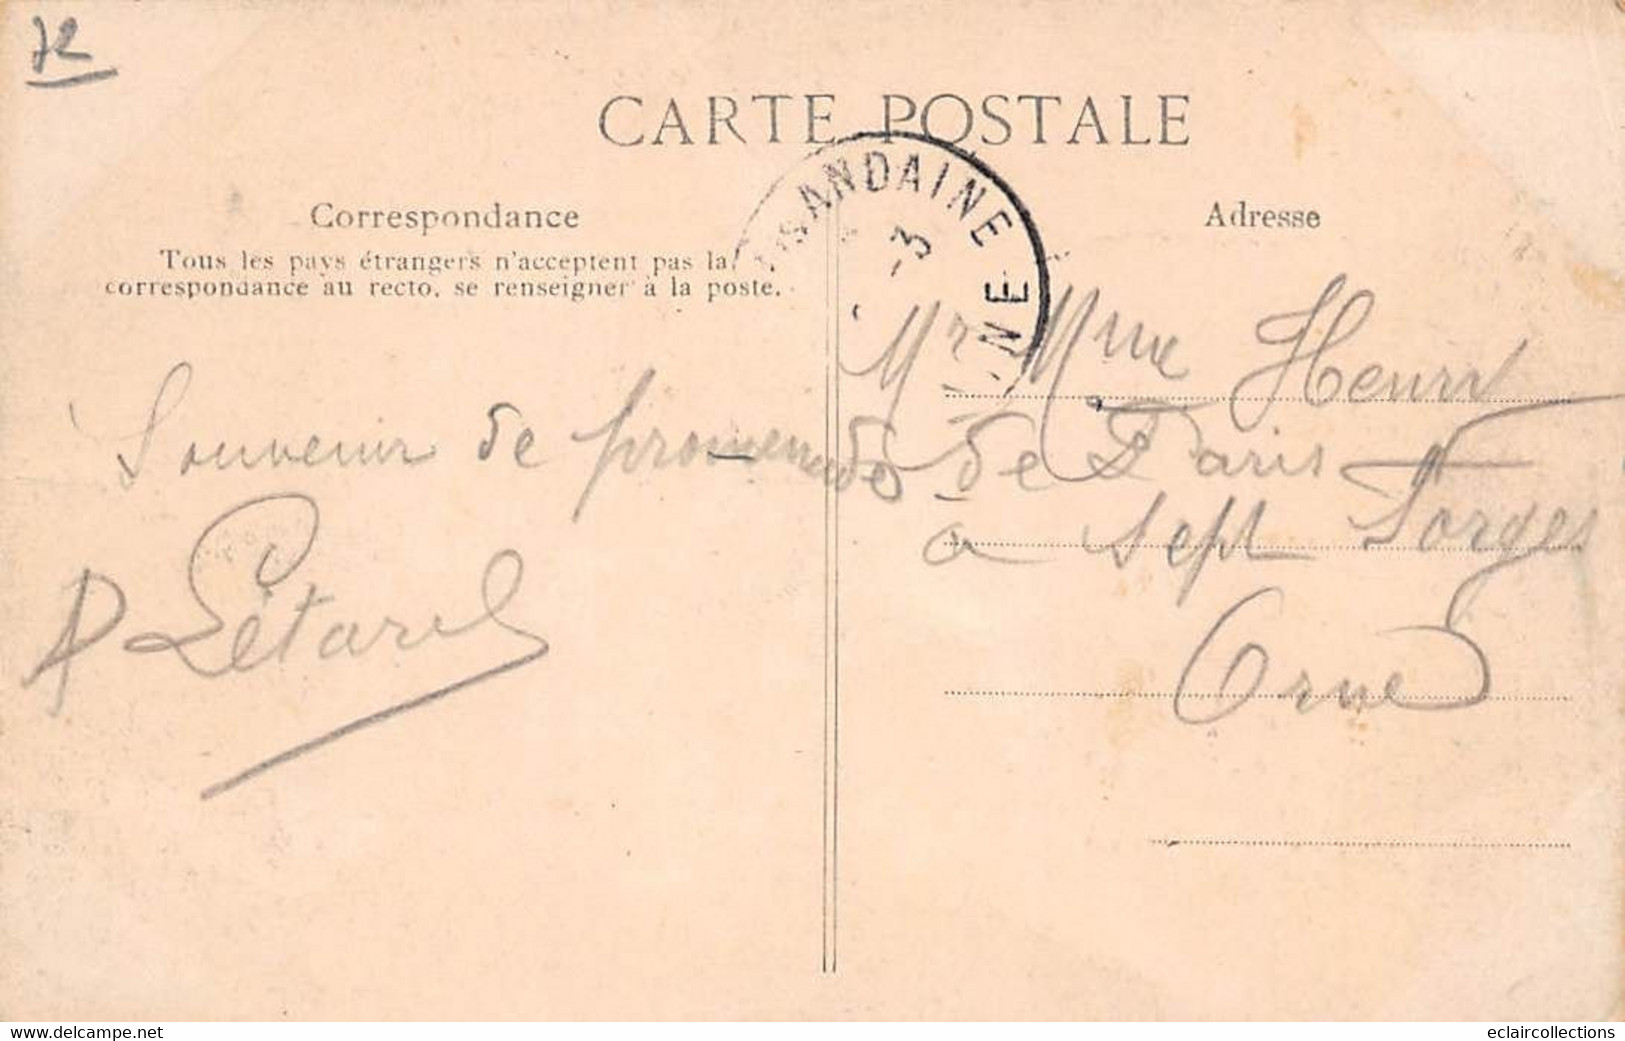 72
CARTE POSTALE
SANDAINE
-3
NE
Correspondance
Tous les pays étrangers n'acceptent pas la
correspondance au recto, se renseigner à la poste.
Adresse
Souvenir de promenade
P Létard
Mr Mme Henri
de Paris
a Sept Forges
Orne
www.delcampe.net
eclaircollections